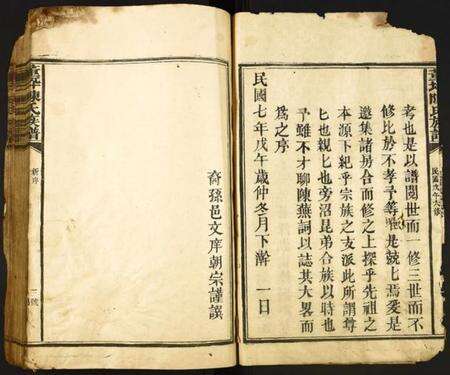 考也是以譜閱世而一修三世而不
修比於不孝予等是兢匕焉爰是
邀集諸房合而修之上探乎先祖之
本源下紀乎宗族之支派此所謂尊
匕也親匕也旁沼昆弟合族以時也
予雖不才聊陳蕪詞以誌其大畧而
爲之序
民國七年戊午歳仲冬月下澣一日
裔孫邑文庠朝宗謹譔
陳氏族譜
新序